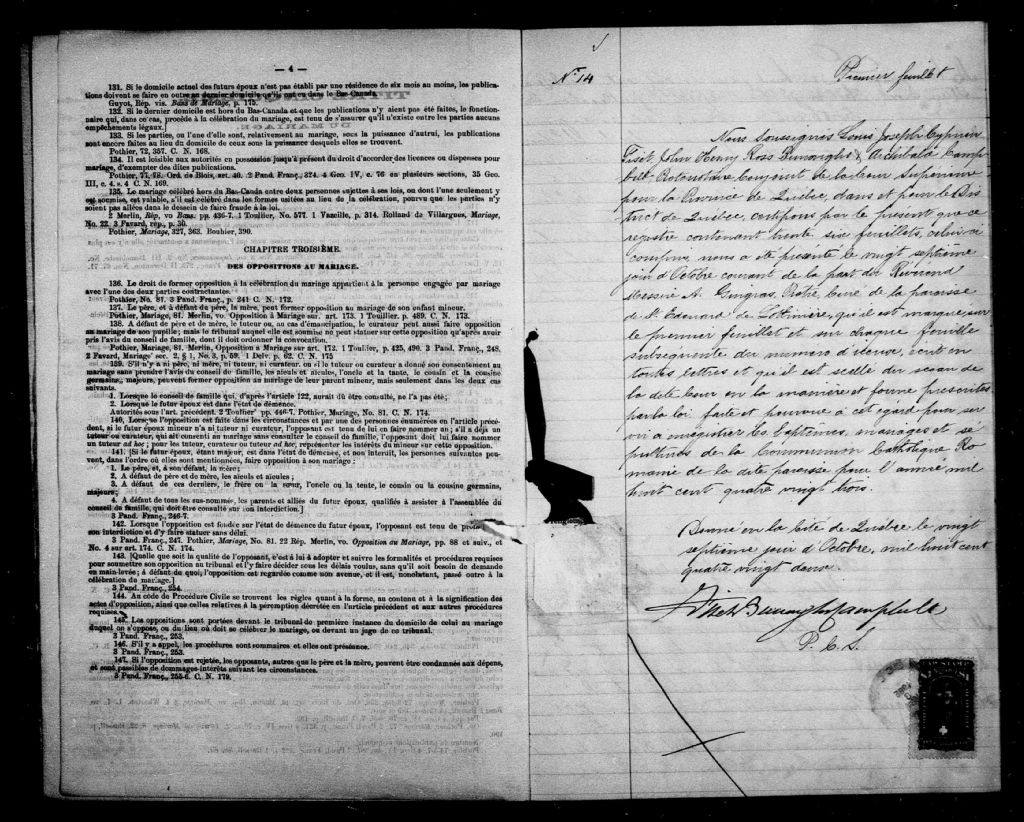 — 4 —
131. Si le domicile actuel des futurs époux n'est pas établi par une résidence de six mois au moins, les publica-
tions doivent se faire en outre au dernier domicile qu'ils ont eu dans le Bas-Canada.
Guyot, Rép. vis. Bans de Mariage, p. 175.
132. Si le dernier domicile est hors du Bas-Canada et que les publications n'y aient pas été faites, le fonction-
naire qui, dans ce cas, procède à la célébration du mariage, est tenu de s'assurer qu'il n'existe entre les parties aucuns
empêchements légaux.]
133. Si les parties, ou l'une d'elles sont, relativement au mariage, sous la puissance d'autrui, les publications
sont encore faites au lieu du domicile de ceux sous la puissance desquels elles se trouvent.
Pothier, 72, 357. C. N. 168.
134. Il est loisible aux autorités en possession jusqu'à présent du droit d'accorder des licences ou dispenses pour
mariage, d'exempter des dites publications.
Pothier, 77, 78. Ord. de Blois, art. 40. 2 Pand. Franç., 324. 4 Geo. IV, c. 76 en plusieurs sections, 35 Geo.
III, c. 4. s. 4 C. N. 169.
135. Le mariage célébré hors du Bas-Canada entre deux personnes sujettes à ses lois, ou dont l'une seulement y
est soumise, est valable, s'il est célébré dans les formes usitées au lieu de la célébration, pourvu que les parties n'y
soient pas allées dans le dessein de faire fraude à la loi.
2 Merlin, Rép, vo Bans. pp. 436-7. 1 Toullier, No. 577. 1 Vazeille, p. 314. Rolland de Villargues, Mariage,
No. 22. 3 Favard, rép., p. 30.
Pothier, Mariage, 327, 363. Bouhier, 390.
CHAPITRE TROISIÈME.
DES OPPOSITIONS AU MARIAGE.
136. Le droit de former opposition à la célébration du mariage appartient à la personne engagée par mariage
avec l'une des deux parties contractantes.
Pothier, No. 81. 3 Pand. Franç., p. 241 C. N. 172.
137. Le père, et à défaut du père, la mère, peut former opposition au mariage de son enfant mineur.
Pothier, Mariage, 81. Merlin, vo. Opposition à Mariage sur. art. 173. 1 Toullier, p. 489. C. N. 173.
138. A défaut de père et de mère, le tuteur ou, au cas d'émancipation, le curateur peut aussi faire opposition
au mariage de son pupille; mais le tribunal auquel elle est soumise ne peut statuer sur cette opposition qu'après avoir
pris l'avis du conseil de famille, dont il doit ordonner la convocation.
Pothier, Mariage, 81. Merlin, Opposition à Mariage sur art. 172. 1 Toullier, p. 425, 490. 3 Pand. Franç., 248.
2 Favard, Mariage sec. 2, § 1, No. 3, p. 59. 1 Delv. p. 62. C. N. 175
139. S'il n'y a ni père, ni mère, ni tuteur, ni curateur, ou si le tuteur ou curateur a donné son consentement au
mariage sans prendre l'avis du conseil de famille, les aïeuls et aïeules, l'oncle et la tante, le cousin et la cousine
germains, majeurs, peuvent former opposition au mariage de leur parent mineur, mais seulement dans les deux cas
suivants.
1. Lorsque le conseil de famille qui, d'après l'article 122, aurait dû être consulté, ne l'a pas été;
2. Lorsque le futur époux est dans l'état de démence.
Autorités sous l'art. précédent. 2 Toullier pp. 446-7. Pothier, Mariage, No. 81. C. N. 174.
140. Lorsque l'opposition est faite dans les circonstances et par une des personnes énumérées en l'article précé-
dent, si le futur époux mineur n'a ni tuteur ni curateur, l'opposant est tenu de lui en faire nommer un; s'il a déjà un
tuteur ou curateur, qui ait consenti au mariage sans consulter le conseil de famille, l'opposant doit lui faire nommer
un tuteur ad hoc; pour les tuteur, curateur ou tuteur ad hoc, représenter les intérêts du mineur sur cette opposition.
141. [Si le futur époux, étant majeur, est dans l'état de démence, et non interdit, les personnes suivantes peu-
vent, dans l'ordre où elles sont nommées, faire opposition à son mariage:
1. Le père, et, à son défaut, la mère;
2. A défaut de père et de mère, les aïeuls et aïeules;
3. A défaut de ces derniers, le frère ou la sœur, l'oncle ou la tante, le cousin ou la cousine germains,
majeurs;
4. A défaut de tous les sus-nommés, les parents et alliés du futur époux, qualifiés à assister à l'assemblée du
conseil de famille, qui doit être consulté sur son interdiction.]
3 Pand. Franç., 246-7.
142. Lorsque l'opposition est fondée sur l'état de démence du futur époux, l'opposant est tenu de
son interdiction et d'y faire statuer sans délai.
3 Pand. Franç., 247. Pothier, Mariage, No. 81. 22 Rép. Merlin, vo. Opposition au Mariage, pp. 88 et suiv., et
No. 4 sur art. 174. C. N. 174.
143. [Quelle que soit la qualité de l'opposant, c'est à lui à adopter et suivre les formalités et procédures requises
pour soumettre son opposition au tribunal et l'y faire décider sous les délais voulus, sans qu'il soit besoin de demande
en main-levée; à défaut de quoi, l'opposition est regardée comme non avenue, et il est, nonobstant, passé outre à la
célébration du mariage.]
3 Pand. Franç., 254.
144. Au code de Procédure Civile se trouvent les règles quant à la forme, au contenu et à la signification des
actes d'opposition, ainsi que celles relatives à la péremption décrétée en l'article précédent et aux autres procédures
requises.
145. Les oppositions sont portées devant le tribunal de première instance du domicile de celui au mariage
duquel on s'oppose, ou du lieu où doit se célébrer le mariage, ou devant un juge de ce tribunal.
3 Pand. Franç., 253.
146. S'il y a appel, les procédures sont sommaires et elles ont préséance.
3 Pand. Franç., 253.
147. Si l'opposition est rejetée, les opposants, autres que le père et la mère, peuvent être condamnés aux dépens,
et sont passibles de dommages-intérêts suivant les circonstances.
3 Pand. Franç., 255-6. C. N. 179.
No 14
Premier feuillet
Nous Soussignés Louis Joseph Cyprien
Fiset, John Henry Ross Burroughs & Archibald Camp-
bell Protonotaire Conjoint de la Cour Supérieure
pour la Province de Québec, dans et pour le Dis-
trict de Québec, certifions par le présent que ce
registre contenant trente six feuillets, celui-ci
compris, nous a été présenté le vingt septième
jour d'Octobre courant de la part du Révérend
Messire A. Gingras, Prêtre, Curé de la paroisse
de St. Edouard de Lotbinière, qu'il est marqué sur
le premier feuillet et sur chaque feuille
subséquente du numéro d'icelle, écrit en
toutes lettres et qu'il est scellé du sceau de
la dite Cour en la manière et forme prescrites
par la loi faite et pourvue à cet égard pour ser
vir à enregistrer les baptêmes, mariages et sé
pultures de la Communion Catholique Ro
maine de la dite paroisse pour l'année mil
huit cent quatre vingt trois.
Donné en la Cité de Québec le vingt
septième jour d'Octobre, mil huit cent
quatre vingt deux.
Fiset Burroughs Campbell
P. C. S.